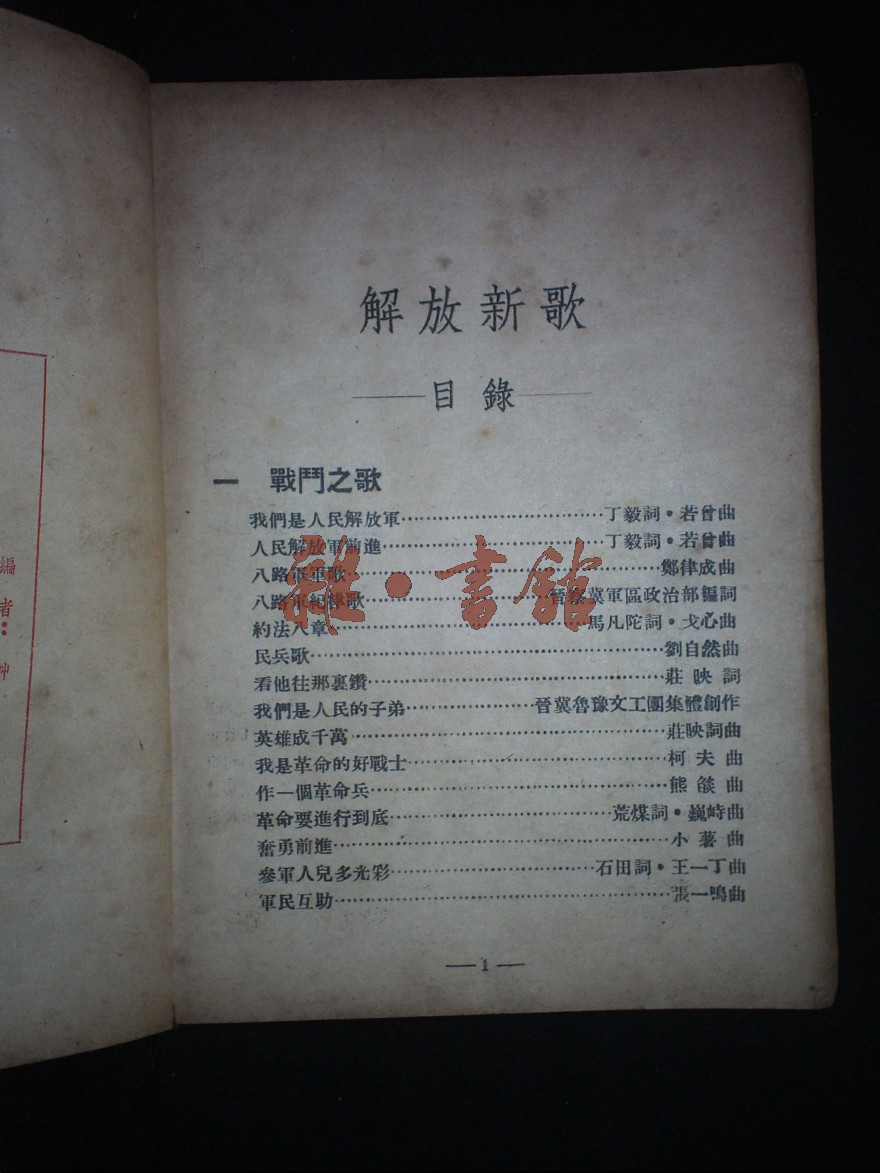 解放新歌
目錄
一 戰鬥之歌
我們是人民解放軍……丁毅詞·若曾曲
人民解放軍前進……丁毅詞·若曾曲
八路軍軍歌……鄭律成曲
八路軍紀律歌……晉察冀軍區政治部編詞
約法八章……馬凡陀詞·戈心曲
民兵歌……劉自然曲
看他往那裏鑽……莊映詞
我們是人民的子弟……晉冀魯豫文工團集體創作
英雄成千萬……莊映詞曲
我是革命的好戰士……柯夫曲
作一個革命兵……熊燄曲
革命要進行到底……荒煤詞·巍峙曲
奮勇前進……小薯曲
參軍人兒多光彩……石田詞·王一丁曲
軍民互助……張一鳴曲
— 1 —
編者：
雜·書館